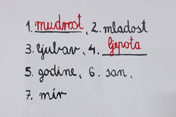 1. mudrost, 2. mladost
3. ljubav, 4. ljepota
5. godine, 6. san,
7. mir